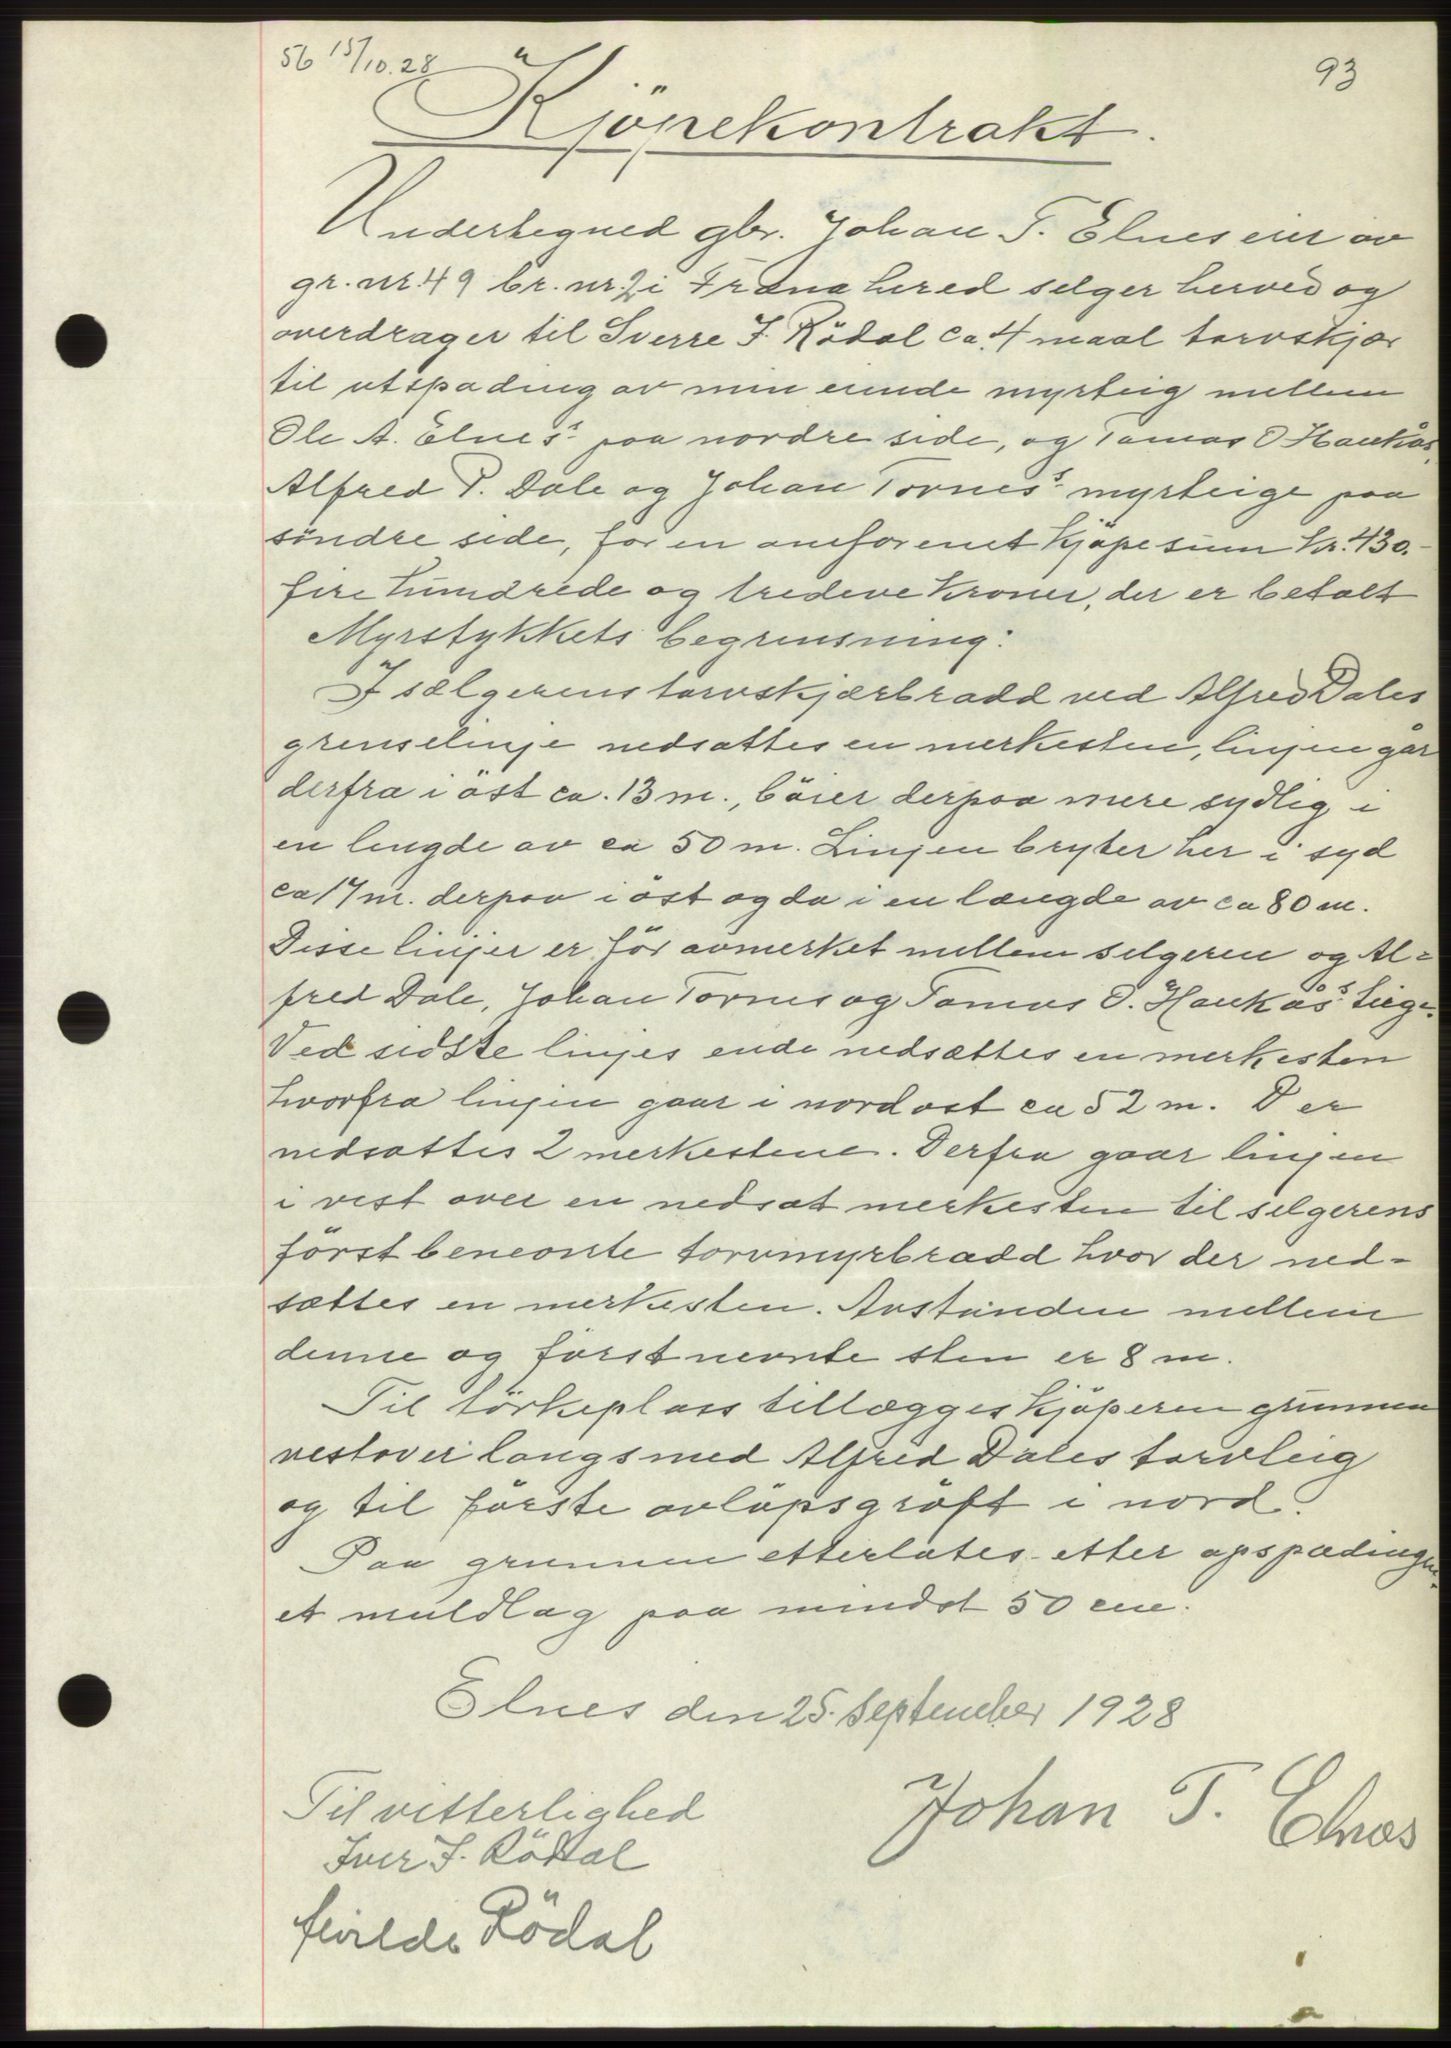 56 15/10.28
93
Kjöpekontrakt.
Undertegned gbr. Johan T. Elnes eier av
gr. nr. 49 br. nr. 2 i Fræna hered selger herved og
overdrager til Sverre J. Rödal ca. 4 maal torvskjær
til utspading av min eiende myrteig mellem
Ole A. Elnes's paa nordre side, og Tomas O Haukås,
Alfred P. Dale og Johan Tornes's myrteige paa
söndre side, for en omforenet kjöpesum kr. 430.-
fire hundrede og tredeve kroner, der er betalt
Myrstykkets begrensning:
I sælgerens torvskjærbradd ved Alfred Dales
grenselinje nedsattes en merkesten, linjen går
derfra i öst ca. 13 m., böier derpaa mere sydlig i
en lengde av ca 50 m. Linjen bryter her i syd
ca 17 m. derpaa i öst og da i en længde av ca 80 m.
Disse linjer er för avmerket mellem selgeren og Al=
fred Dale, Johan Tornes og Tomas O. Haukås's teige.
Ved sidste linjes ende nedsættes en merkesten
hvorfra linjen gaar i nordost ca 52 m. Der
nedsattes 2 merkestene. Derfra gaar linjen
i vest over en nedsat merkesten til selgerens
först benevnte torvmyrbradd hvor der ned-
sættes en merkesten. Avstanden mellem
denne og först nevnte sten er 8 m.
Til törkeplass tillægges kjöperen grunnen
vestover langsmed Alfred Dales torvteig
og til förste avlöpsgröft i nord.
Paa grunnen etterlates etter opspadingen
et muldlag paa mindst 50 cm.
Elnes den 25. september 1928
Johan T. Elnes
Til vitterlighed
Iver J. Rödal
Rödal